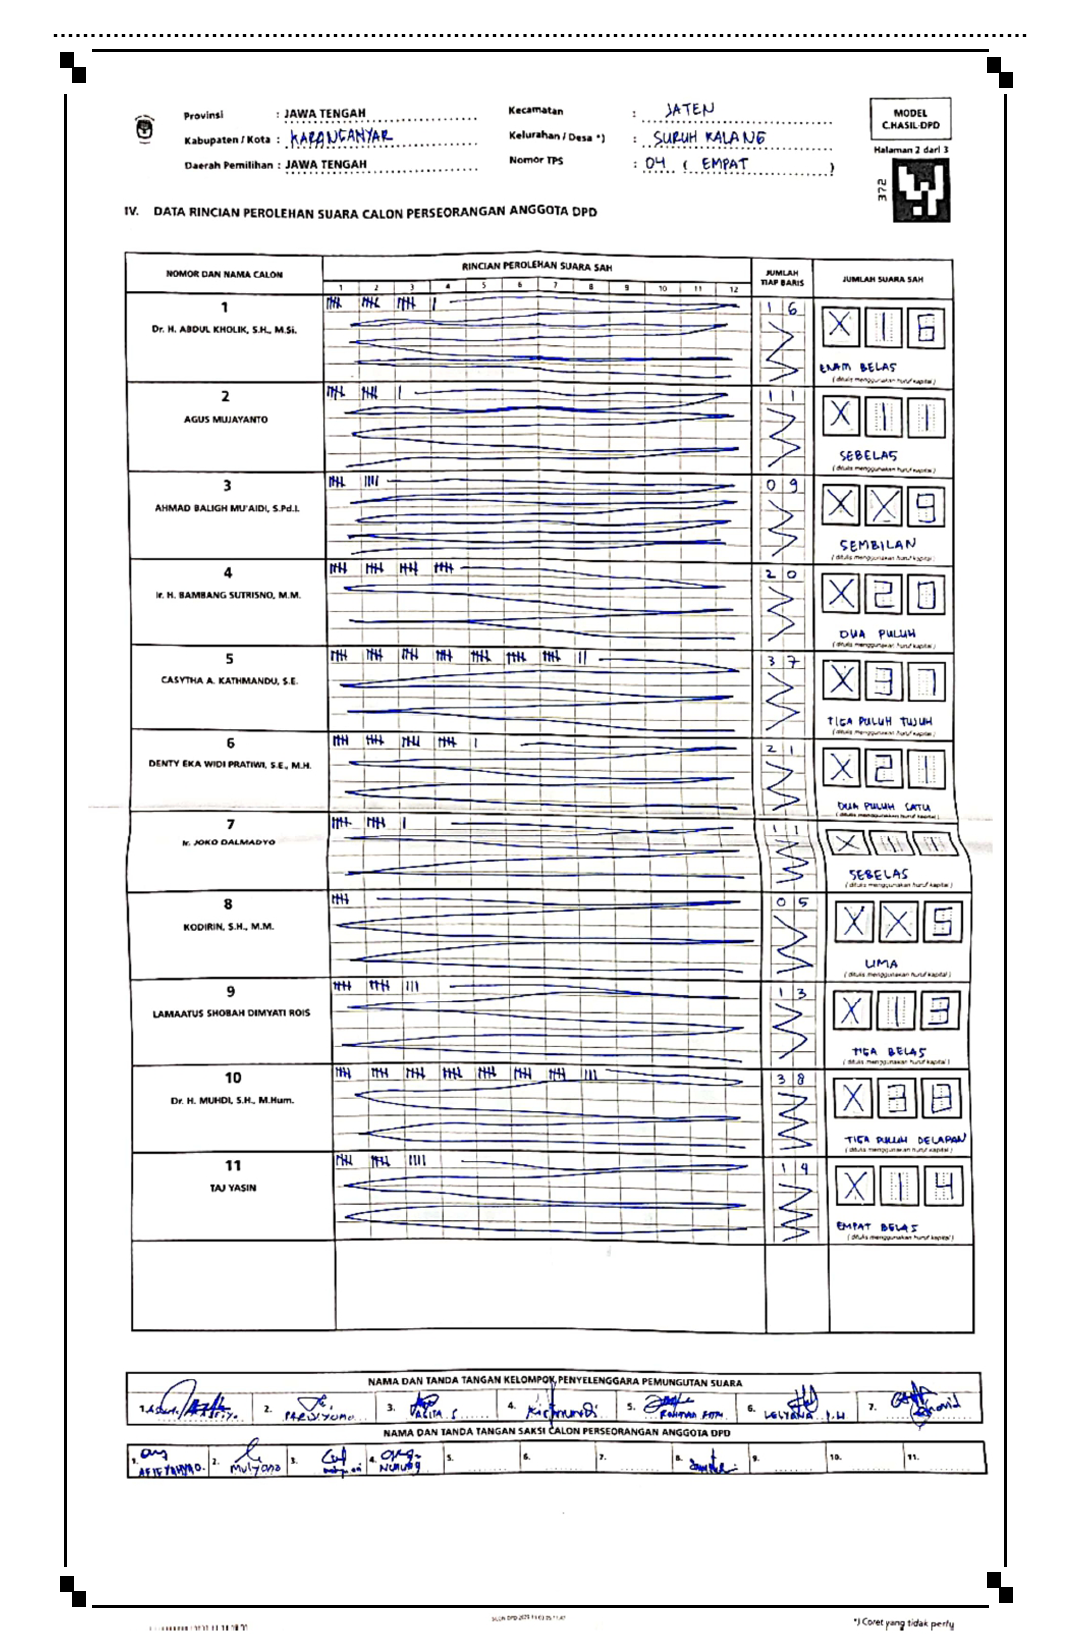 Provinsi : JAWA TENGAH
Kabupaten / Kota : KARANGANYAR
Daerah Pemilihan : JAWA TENGAH
Kecamatan : JATEN
Kelurahan / Desa *) : SURUH KALANG
Nomor TPS : 04 ( EMPAT )
MODEL
C.HASIL-DPD
Halaman 2 dari 3
372
IV. DATA RINCIAN PEROLEHAN SUARA CALON PERSEORANGAN ANGGOTA DPD
NOMOR DAN NAMA CALON
RINCIAN PEROLEHAN SUARA SAH
1 2 3 4 5 6 7 8 9 10 11 12
JUMLAH
TIAP BARIS
JUMLAH SUARA SAH
1
Dr. H. ABDUL KHOLIK, S.H., M.Si.
1 6
X 1 6
ENAM BELAS
( ditulis menggunakan huruf kapital )
2
AGUS MUJAYANTO
1 1
X 1 1
SEBELAS
( ditulis menggunakan huruf kapital )
3
AHMAD BALIGH MU'AIDI, S.Pd.I.
0 9
X X 9
SEMBILAN
( ditulis menggunakan huruf kapital )
4
Ir. H. BAMBANG SUTRISNO, M.M.
2 0
X 2 0
DUA PULUH
( ditulis menggunakan huruf kapital )
5
CASYTHA A. KATHMANDU, S.E.
3 7
X 3 7
TIGA PULUH TUJUH
( ditulis menggunakan huruf kapital )
6
DENTY EKA WIDI PRATIWI, S.E., M.H.
2 1
X 2 1
DUA PULUH SATU
( ditulis menggunakan huruf kapital )
7
Ir. JOKO DALMADYO
1 1
X 1 1
SEBELAS
( ditulis menggunakan huruf kapital )
8
KODIRIN, S.H., M.M.
0 5
X X 5
LIMA
( ditulis menggunakan huruf kapital )
9
LAMAATUS SHOBAH DIMYATI ROIS
1 3
X 1 3
TIGA BELAS
( ditulis menggunakan huruf kapital )
10
Dr. H. MUHDI, S.H., M.Hum.
3 8
X 3 8
TIGA PULUH DELAPAN
( ditulis menggunakan huruf kapital )
11
TAJ YASIN
1 4
X 1 4
EMPAT BELAS
( ditulis menggunakan huruf kapital )
NAMA DAN TANDA TANGAN KELOMPOK PENYELENGGARA PEMUNGUTAN SUARA
1. 2. 3. 4. 5. 6. 7.
NAMA DAN TANDA TANGAN SAKSI CALON PERSEORANGAN ANGGOTA DPD
1. 2. Mulyono 3. 4. 5. 6. 7. 8. 9. 10. 11.
*) Coret yang tidak perlu